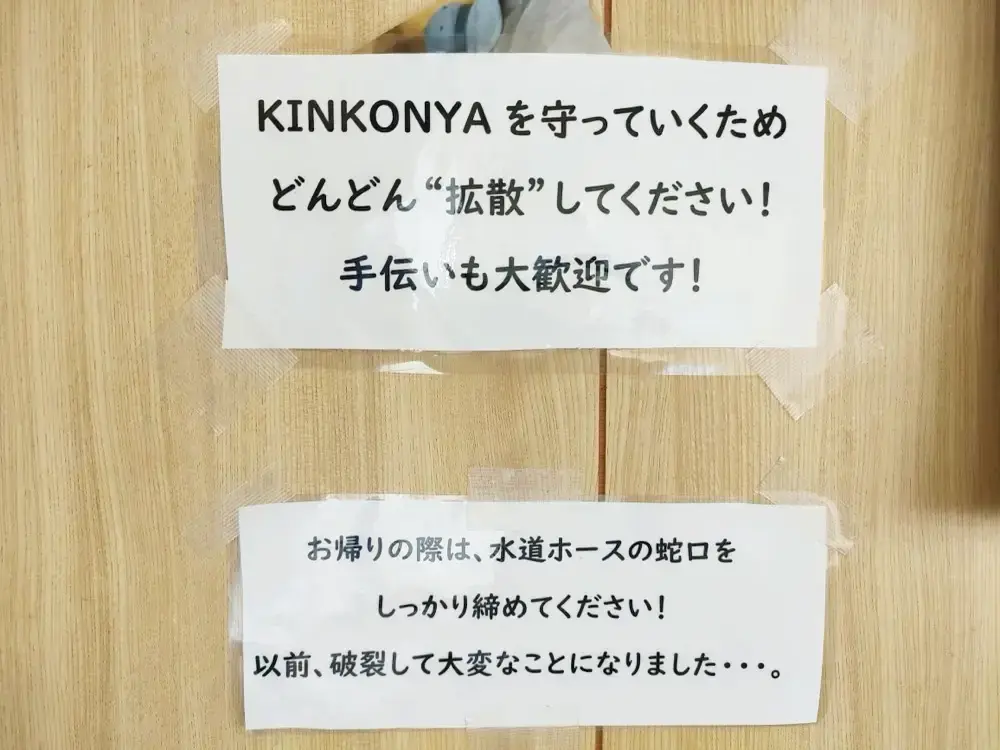 KINKONYA を守っていくため
どんどん“拡散”してください!
手伝いも大歓迎です!
お帰りの際は、水道ホースの蛇口を
しっかり締めてください!
以前、破裂して大変なことになりました・・・。